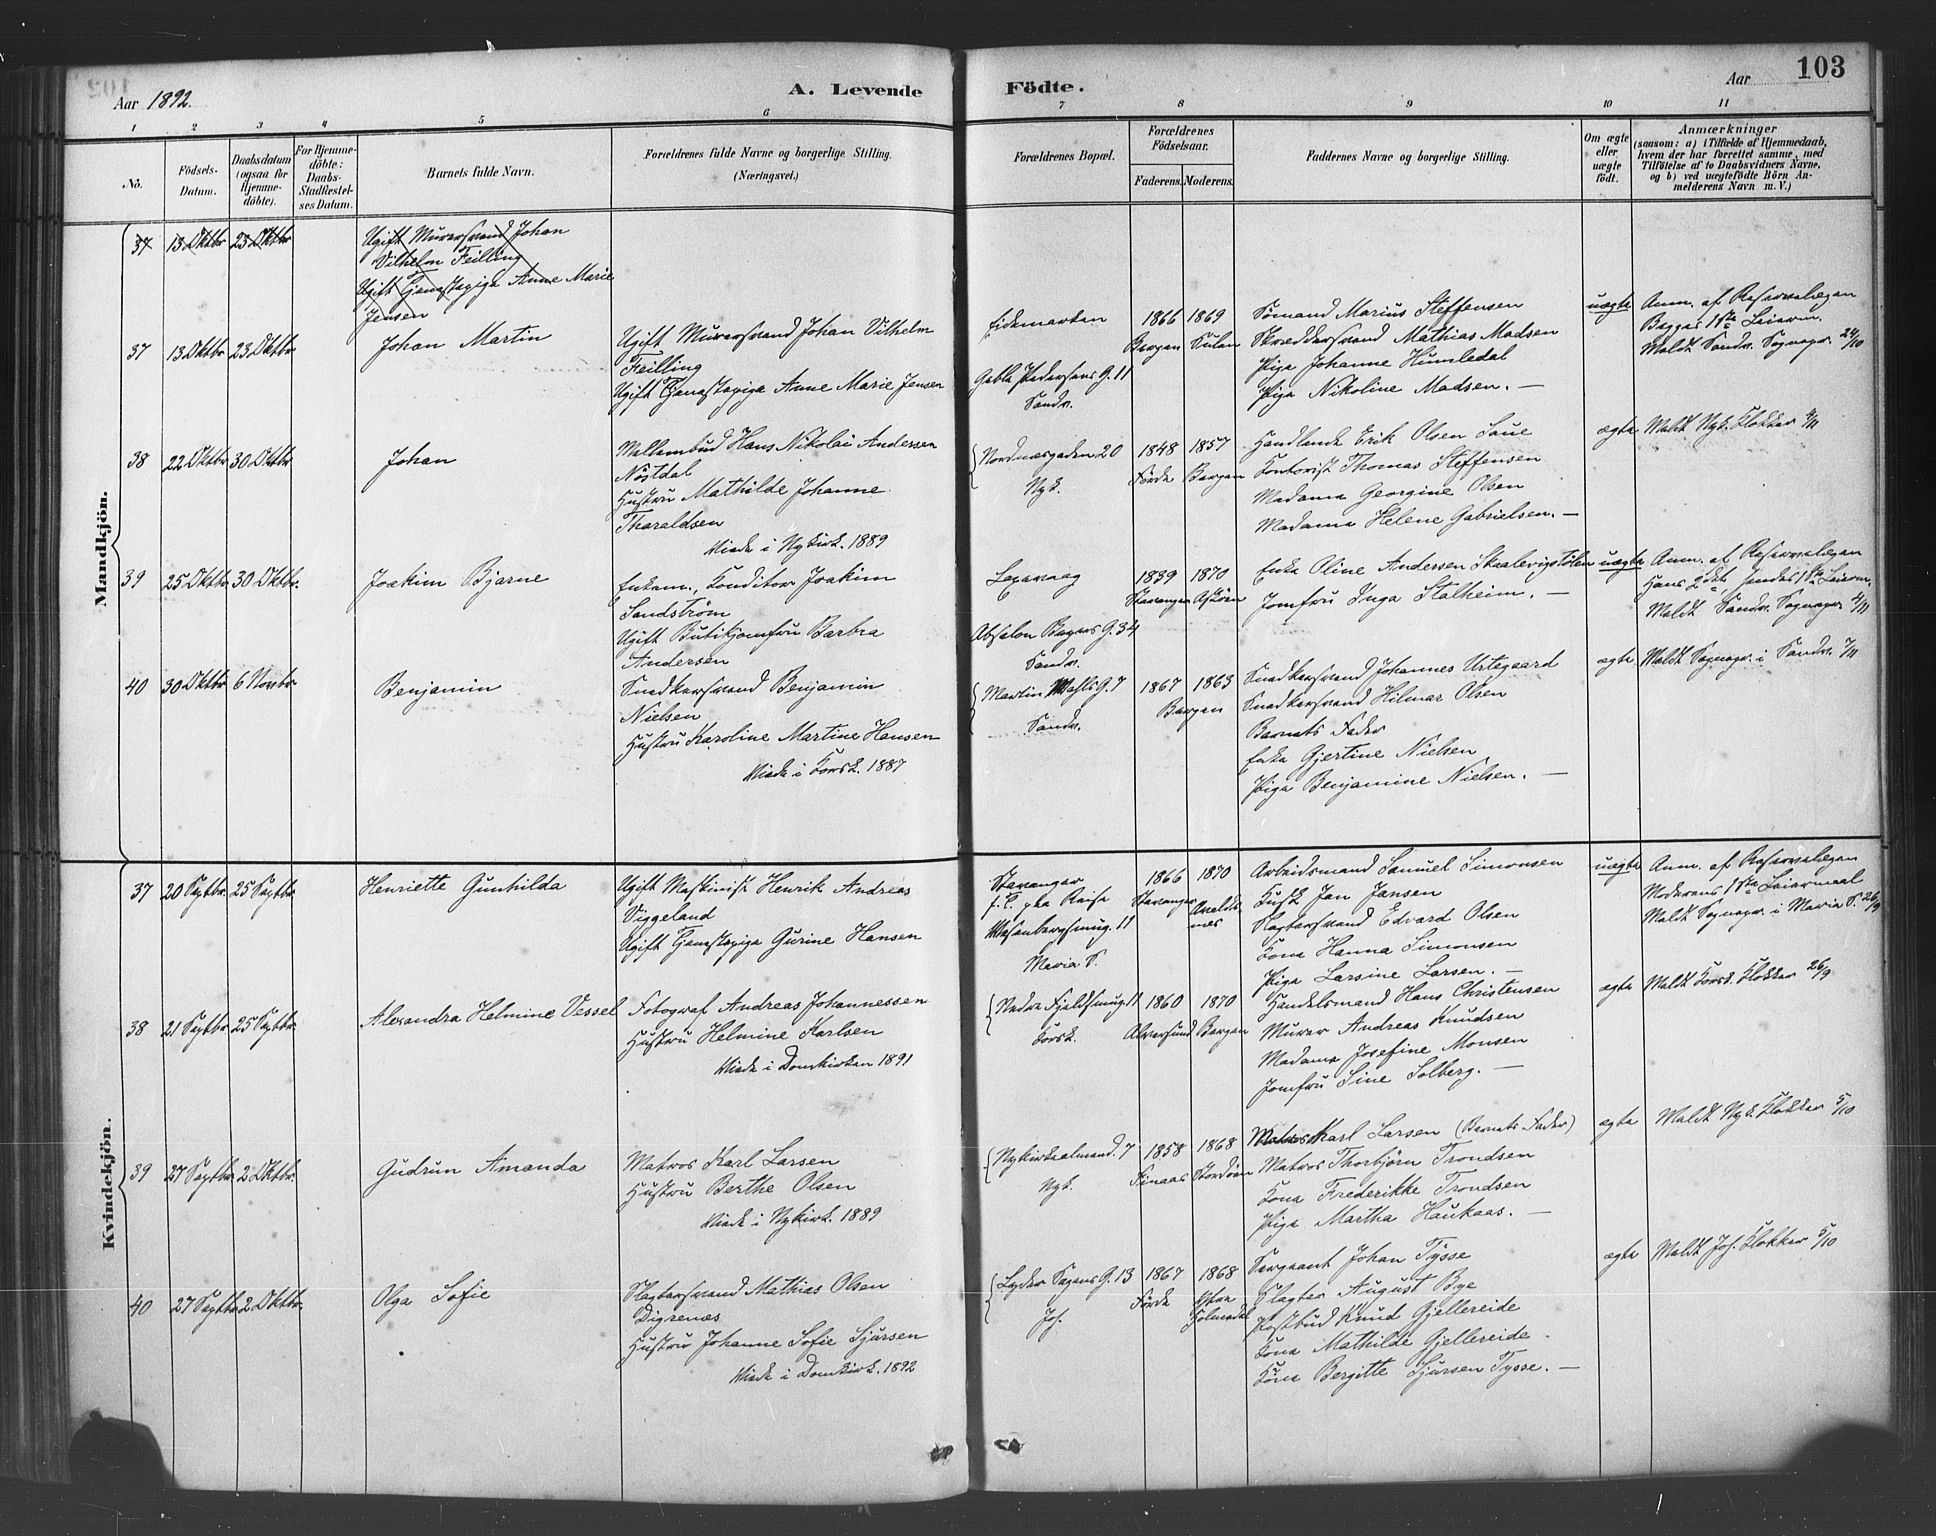 Aar 1892.
A. Levende
Födte.
Aar 103
1 2 3 4 5 6 7 8 9 10 11
No.
Födsels-
Datum.
Daabsdatum
(ogsaa for
Hjemme-
döbte).
For Hjemme-
döbte:
Daabs-
Stadfæstel-
ses Datum.
Barnets fulde Navn.
Forældrenes fulde Navne og borgerlige Stilling.
(Næringsvei.)
Forældrenes Bopæl.
Forældrenes
Födselsaar.
Faderens. Moderens.
Faddernes Navne og borgerlige Stilling.
Om ægte
eller
uægte
födt.
Anmærkninger
(saasom: a) i Tilfælde af Hjemmedaab,
hvem der har forrettet samme, med
Tilföielse af to Daabsvidners Navne,
og b) ved uægtefödte Börn An-
melderens Navn m. V.)
Mandkjön.
37 13 Oktbr 23 Oktbr
Ugift Murersvend Johan
Vilhelm Feilling
Ugift Tjenestepige Anne Marie
Jensen
37 13 Oktbr 23 Oktbr
Johan Martin
Ugift Murersvend Johan Vilhelm
Feilling
Ugift Tjenestepige Anne Marie Jensen
Eidemarken
Gabla Pedersens G. 11
Sandv.
1866 1869
Bergen Sulen
Sömand Marius Steffensen
Skræddersvend Mathias Madsen
Pige Johanne Humledal
Pige Nikoline Madsen. —
uægte
Anm. af Reservelægen
Begges 1ste Leierm.
Meldt Sandv. Sognepr. 24/10
38 22 Oktbr 30 Oktbr
Johan
Mellembud Hans Nikolai Andersen
Nöstdal
Hustru Mathilde Johanne
Tharaldsen
Viede i Nykirk. 1889
Nordnæsgaden 20
Nyk.
1848 1857
Förde Bergen
Handlende Erik Olsen Saue
Kontorist Thomas Steffensen
Madame Georgine Olsen
Madame Helene Gabrielsen. —
ægte
Meldt Nyk. Klokker 4/11
39 25 Oktbr 30 Oktbr.
Joakim Bjarne
Enkem., Konditor Joakim
Sandström
Ugift Butikjomfru Barbra
Andersen
Laxevaag
Absalon Beyers G. 34
Sandv.
1839 1870
Stavanger Asköen
Enke Oline Andersen Skaalevigstölen
Jomfru Inga Stalheim. —
uægte
Anm. af Reservelægen
Hans 2det hendes 1ste Leierm.
Meldt Sandv. Sognepr 4/11
40 30 Oktbr 6 Novbr
Benjamin
Snedkersvend Benjamin
Nielsen
Hustru Karoline Martine Hansen
Viede i Korsk. 1887
Martin Vahls G. 7
Sandv.
1867 1863
Bergen
Snedkersvend Johannes Urtegaard
Snedkersvend Hilmar Olsen
Barnets Fader
Enke Gjertine Nielsen
Pige Benjamine Nielsen. —
ægte
Meldt Sognepr. i Sandv. 7/11
Kvindekjön.
37 20 Septbr. 25 Septbr
Henriette Gunhilda
Ugift Maskinist Henrik Andreas
Viggeland
Ugift Tjenestepige Gurine Hansen
Stavanger
f. T. paa Reise
Wesenbergsmug. 11
Maria S.
1866 1870
Stavanger Avalds-
nes
Arbeidsmand Samuel Simonsen
Kusk Jan Jansen
Slagtersvend Edvard Olsen
Kone Hanna Simonsen
Pige Larsine Larsen. —
uægte
Anm. af Reservelægen
Moderens 1ste Leiermaal
Meldt Sognepr. i Maria S. 26/9
38 21 Septbr. 25 Septbr.
Alexandra Helmine Vessel
Fotograf Andreas Johannessen
Hustru Helmine Karlsen
Viede i Domkirken 1891
Nedre Fjeldsmug. 11
Korsk.
1860 1870
Alversund Bergen
Handelsmand Hans Christensen
Murer Andreas Knudsen
Madame Josefine Monsen
Jomfru Sine Solberg. —
ægte
Meldt Korsk. Klokker 26/9
39 27 Septbr 2 Oktbr.
Gudrun Amanda
Matros Karl Larsen
Hustru Berthe Olsen
Viede i Nykirk. 1889
Nykirkealmend. 7
Nyk.
1858 1868
Finaas Stordöen
Matros Karl Larsen (Barnets Fader)
Matros Thorbjörn Trondsen
Kone Frederikke Trondsen
Pige Martha Haukaas. —
ægte
Meldt Nyk. Klokker 5/10
40 27 Septbr 2 Oktbr.
Olga Sofie
Slagtersvend Mathias Olsen
Digrenæs
Hustru Johanne Sofie Sjursen
Viede i Domkirk. 1892
Lyder Sagens G. 13
Joh.
1867 1868
Förde Ytre
Holmedal
Sergeant Johan Tysse
Slagter August Bye
Postbud Knud Gjellereide
Kone Mathilde Gjellereide
Kone Bergitte Sjursen Tysse. —
ægte
Meldt Joh. Klokker 5/10